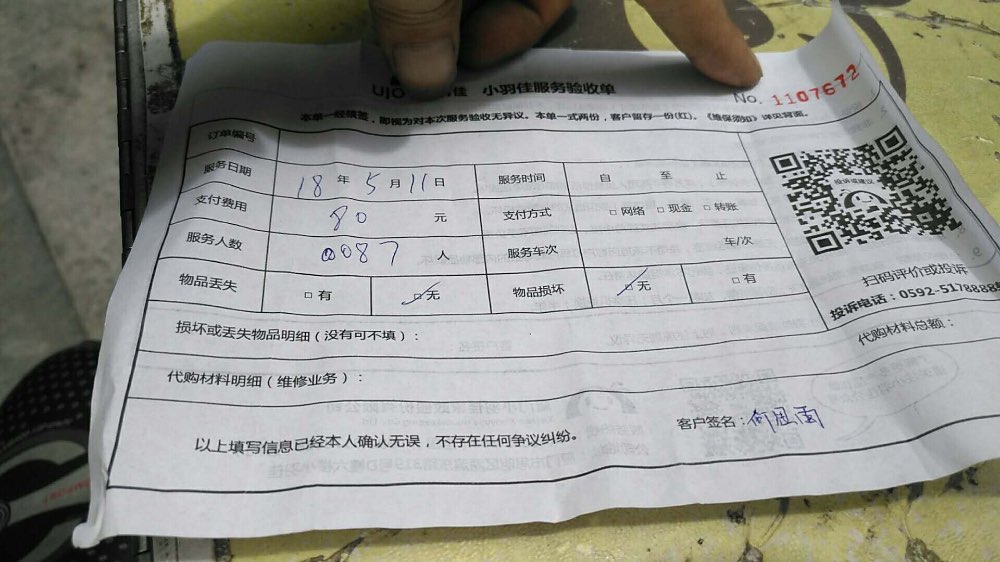 佳 小羽佳服务验收单
No. 1107672
本单一经填签，即视为对本次服务验收无异议。本单一式两份，客户留存一份(红)。《维保须知》详见背面。
订单编号
服务日期 18 年 5 月 11 日 服务时间 自 至 止
支付费用 80 元 支付方式 □ 网络 □ 现金 □ 转账
服务人数 0087 人 服务车次 车/次
物品丢失 □ 有 ☑ 无 物品损坏 ☑ 无 □ 有
投诉或建议
扫码评价或投诉
投诉电话：0592-5178888
损坏或丢失物品明细（没有可不填）：
代购材料明细（维修业务）： 代购材料总额：
以上填写信息已经本人确认无误，不存在任何争议纠纷。 客户签名：何